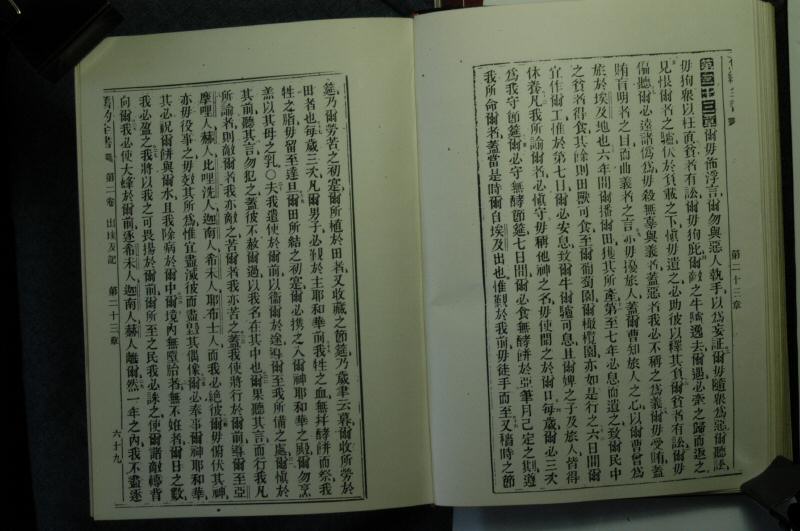 第二十三章
第二十三章 爾毋佈浮言、爾勿與惡人執手、以爲妄証、爾毋隨衆爲惡、爾聽訟、
毋徇衆以枉直、貧者有訟、爾毋徇庇、爾敵之牛驢逸去、爾遇必牽之歸而返之、
見恨爾者之驢伏於負載之下、愼毋遺之、必助彼以釋其負、爾貧者有訟、爾毋
偏聽、爾必遠諸僞爲、毋殺無辜與義者、蓋惡者我必不稱之爲義、爾毋受賄、蓋
賄盲明者之目、而曲義者之言、亦毋擾旅人、蓋爾曹知旅人之心、以爾曹曾爲
旅於埃及地也、六年間爾播爾田、穫其所產、第至七年必息而遺之、致爾民中
之貧者得食、其餘則田獸可食、至爾葡萄園、爾橄欖園、亦如是行之、六日間爾
宜作爾工、惟於第七日、爾必安息、致爾牛爾驢可息、且爾婢之子及旅人皆得
休養、凡我所諭爾者、必愼守、毋稱他神之名、毋使聞之於爾口、每歲爾必三次
爲我守節筵、爾必守無酵節筵、七日間爾必食無酵餅、於亞筆月已定之期、遵
我所命爾者、蓋當是時爾自埃及出也、惟覲於我前、毋徒手而至、又穡時之節
筵、乃爾勞苦之初實、爾所植於田者、又收藏之節筵、乃歲聿云暮、爾收所勞於
田者也、每歲三次、凡爾男子必覲於主耶和華前、我牲之血、無并酵餅而祭、我
牲之脂、毋留至達旦、爾田所結之初實、爾必攜之入爾神耶和華之殿、爾勿烹
羔以其母之乳、〇夫我遣使於爾前、以衛爾於途、導爾至我所備之處、爾愼於
其前、聽其言、勿犯之、蓋彼不赦爾過、以我名在其中也、爾果聽其言、而行我凡
所諭者、則敵爾者我亦敵之、苦爾者我亦苦之、蓋我使將行於爾前、導爾至亞
摩哩人、赫人、比哩洗人、迦南人、希未人、耶布士人、而我必絕彼、爾毋俯伏其神、
亦毋役事之、毋效其所爲、惟宜盡滅彼、而盡毀其偶像、爾必奉事爾神耶和華、
其必祝爾餅與爾水、且我除病於爾中、爾境內、無墮胎者、無不姙者、爾日之數、
我必盈之、我將以我之可畏揚於爾前、爾所至之民、我必誅之、使爾諸敵轉背
向爾、我必使大蜂於爾前、逐希未人、迦南人、赫人離爾、然一年之內、我不盡逐
第二卷 出埃及記 第二十三章 六十九